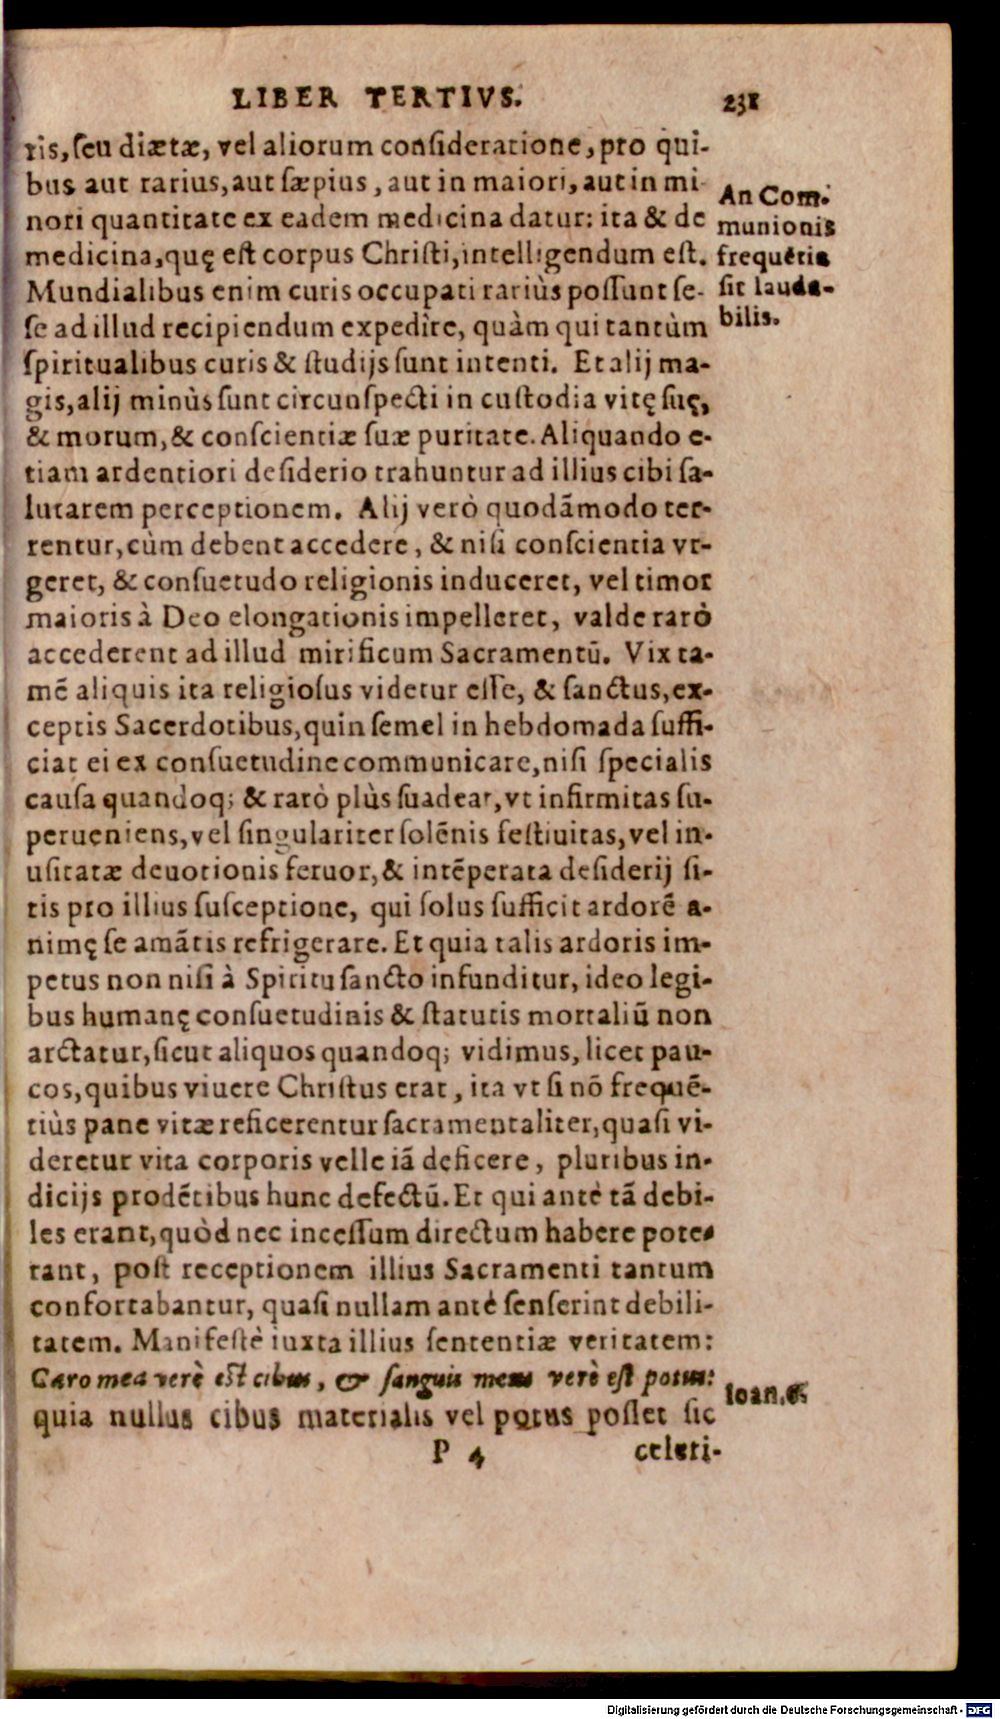 LIBER TERTIVS. 231
ris, ſeu diætæ, vel aliorum conſideratione, pro qui-
bus aut rarius, aut ſæpius, aut in maiori, aut in mi
nori quantitate ex eadem medicina datur: ita & de
medicina, quę eſt corpus Chriſti, intelligendum eſt.
Mundialibus enim curis occupati rariùs poſſunt ſe-
ſe ad illud recipiendum expedire, quàm qui tantùm
ſpiritualibus curis & ſtudijs ſunt intenti. Et alij ma-
gis, alij minùs ſunt circunſpecti in cuſtodia vitę ſuę,
& morum, & conſcientiæ ſuæ puritate. Aliquando e-
tiam ardentiori deſiderio trahuntur ad illius cibi ſa-
lutarem perceptionem. Alij verò quodāmodo ter-
rentur, cùm debent accedere, & niſi conſcientia vr-
geret, & conſuetudo religionis induceret, vel timor
maioris à Deo elongationis impelleret, valde rarò
accederent ad illud mirificum Sacramentū. Vix ta-
mē aliquis ita religioſus videtur eſſe, & ſanctus, ex-
ceptis Sacerdotibus, quin ſemel in hebdomada ſuffi-
ciat ei ex conſuetudine communicare, niſi ſpecialis
cauſa quandoq; & rarò plùs ſuadeat, vt infirmitas ſu-
perueniens, vel ſingulariter ſolēnis feſtiuitas, vel in-
uſitatæ deuotionis feruor, & intēperata deſiderij ſi-
tis pro illius ſuſceptione, qui ſolus ſufficit ardorē a-
nimę ſe amātis refrigerare. Et quia talis ardoris im-
petus non niſi à Spiritu ſancto infunditur, ideo legi-
bus humanę conſuetudinis & ſtatutis mortaliū non
arctatur, ſicut aliquos quandoq; vidimus, licet pau-
cos, quibus viuere Chriſtus erat, ita vt ſi nō frequē-
tiùs pane vitæ reficerentur ſacramentaliter, quaſi vi-
deretur vita corporis velle iā deficere, pluribus in-
dicijs prodētibus hunc defectū. Et qui antè tā debi-
les erant, quòd nec inceſſum directum habere pote-
rant, poſt receptionem illius Sacramenti tantum
confortabantur, quaſi nullam antè ſenſerint debili-
tatem. Manifeſtè iuxta illius ſententiæ veritatem:
Caro mea verè eſt cibus, & ſanguis meus verè eſt potus:
quia nullus cibus materialis vel potus poſſet ſic
P 4 celeri-
An Com-
munionis
frequētia
ſit lauda-
bilis.
Ioan. 6.
Digitalisierung gefördert durch die Deutsche Forschungsgemeinschaft - DFG